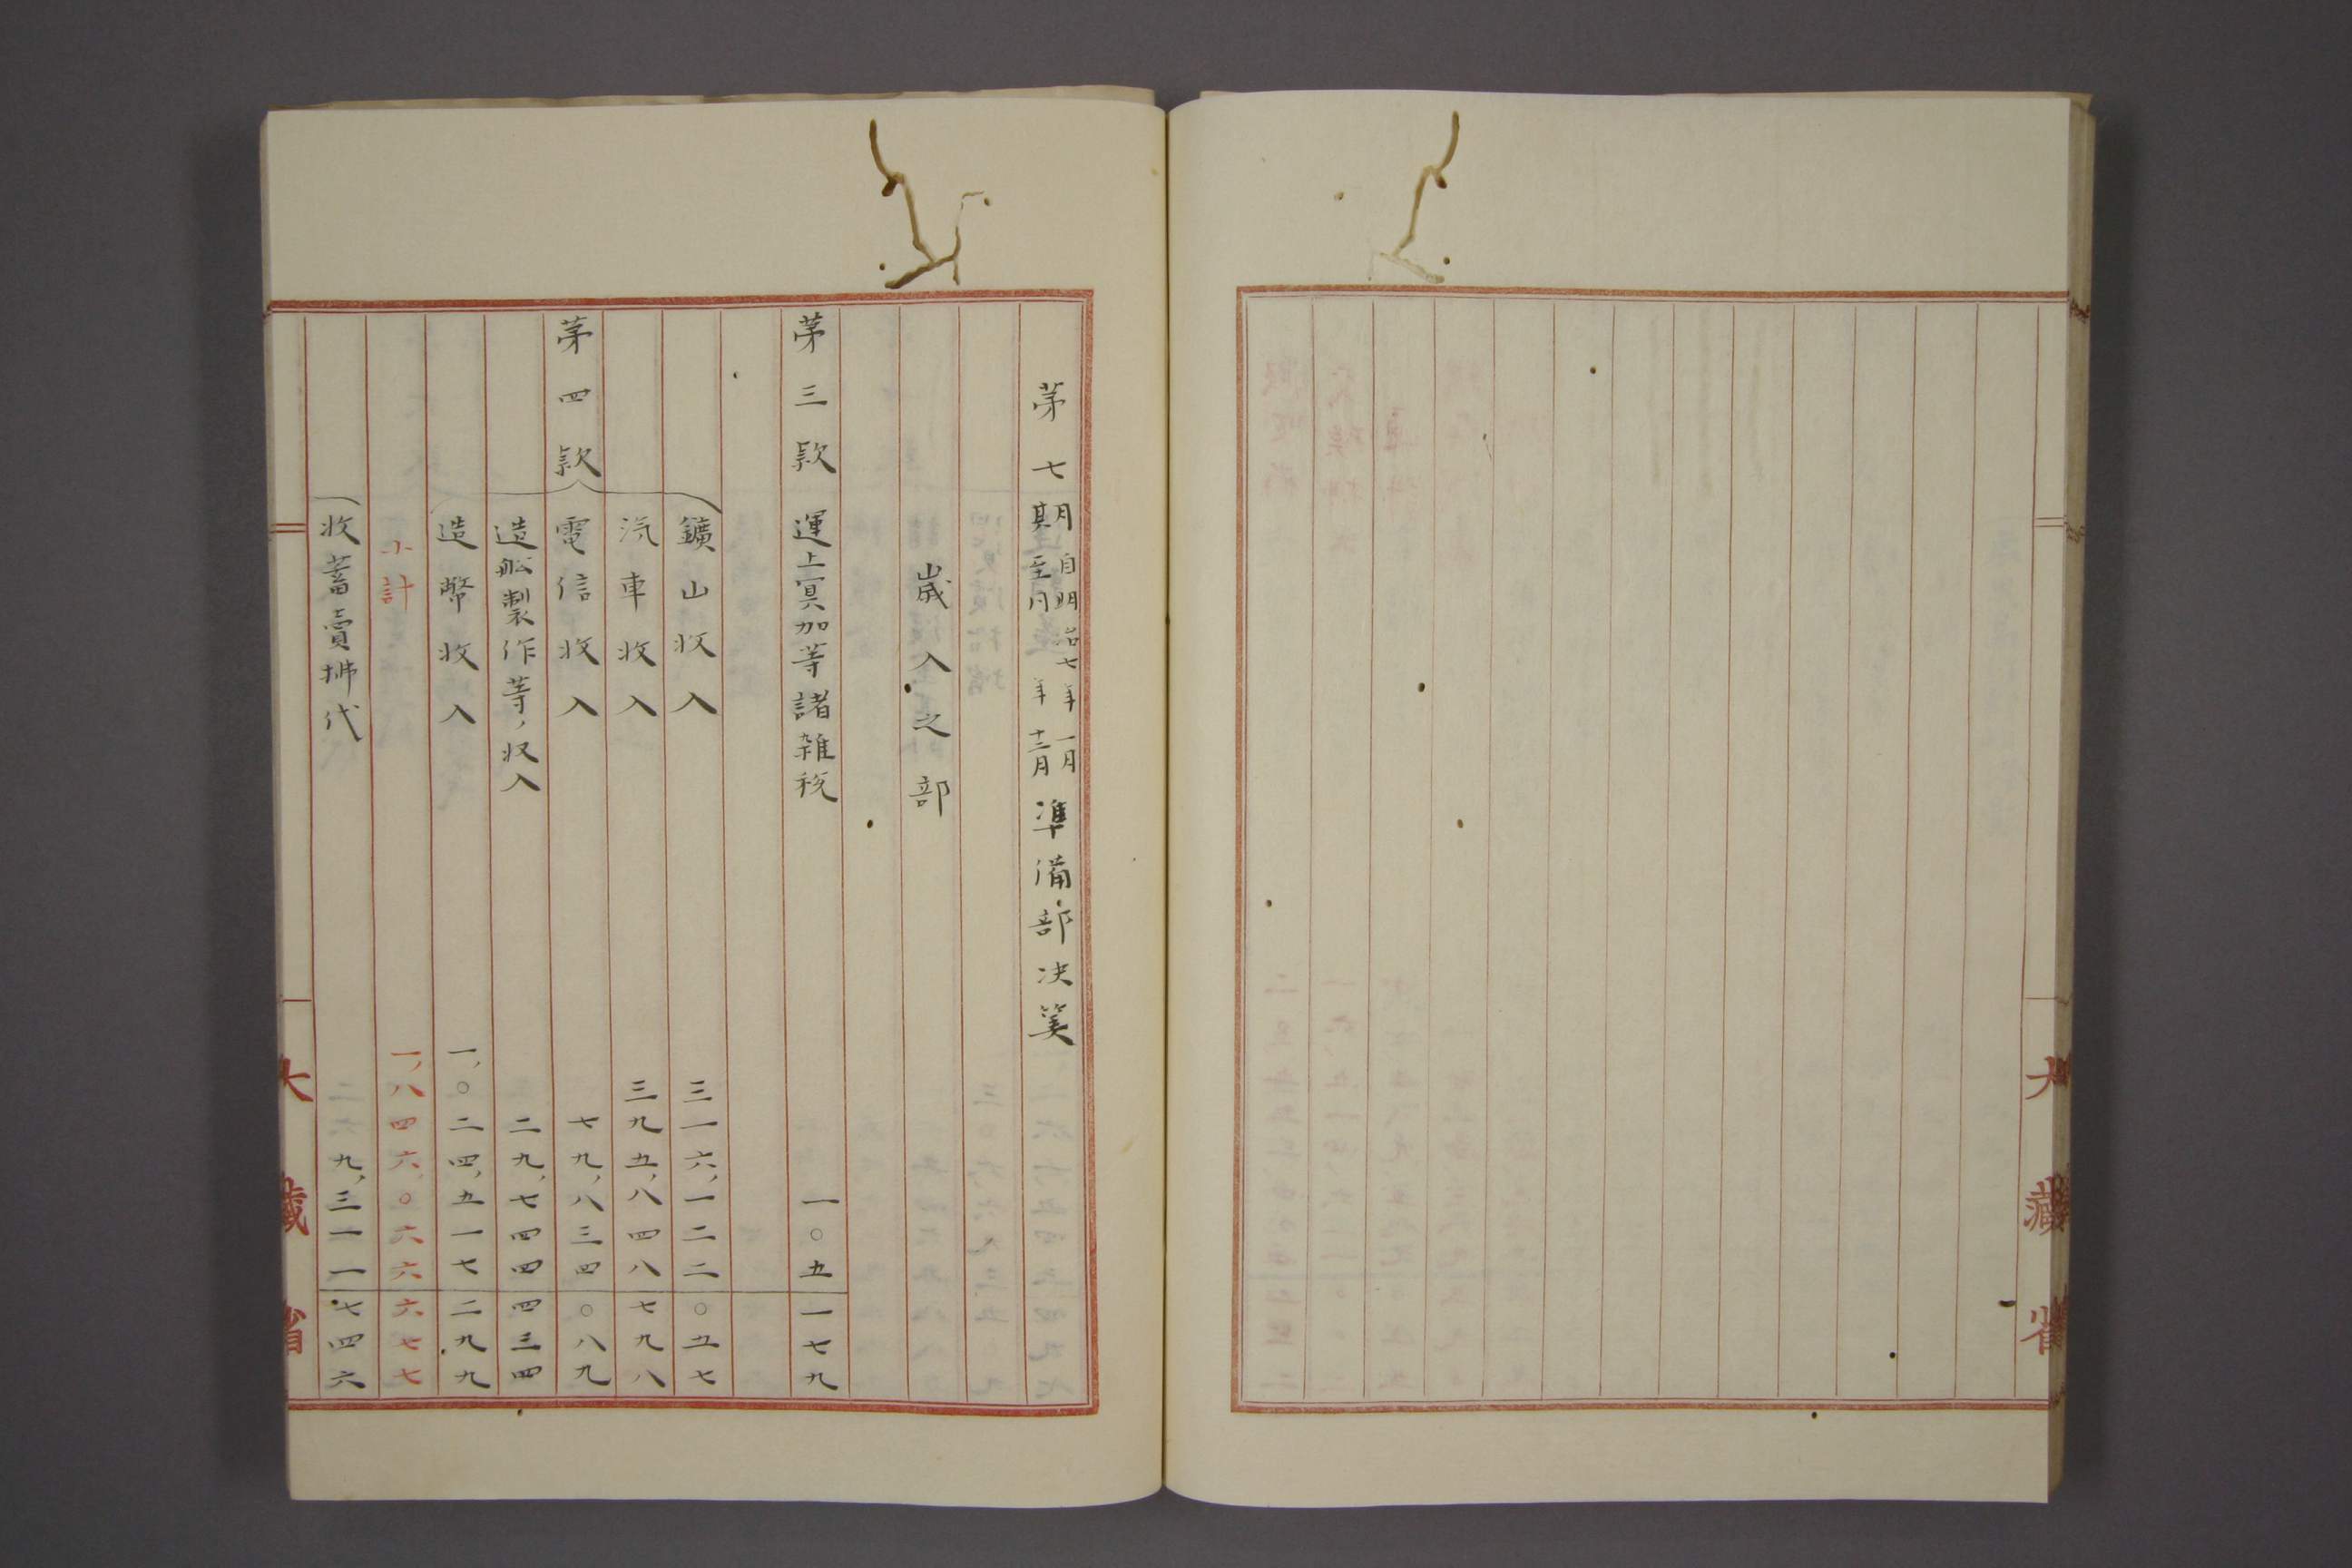 大藏省
第七期 自明治七年一月 至同年十二月 準備部决筭
歳入之部
第三款 運上冥加等諸雑税 一〇五 一七九
鑛山收入 三一六,一二二 〇五七
汽車收入 三九五,八四八 七九八
第四款 電信收入 七九,八三四 〇八九
造舩製作等ノ収入 二九,七四四 四三四
造幣收入 一,〇二四,五一七 二九九
小計 一,八四六,〇六六 六七七
收蓄賣拂代 二六九,三一一 七四六
大藏省